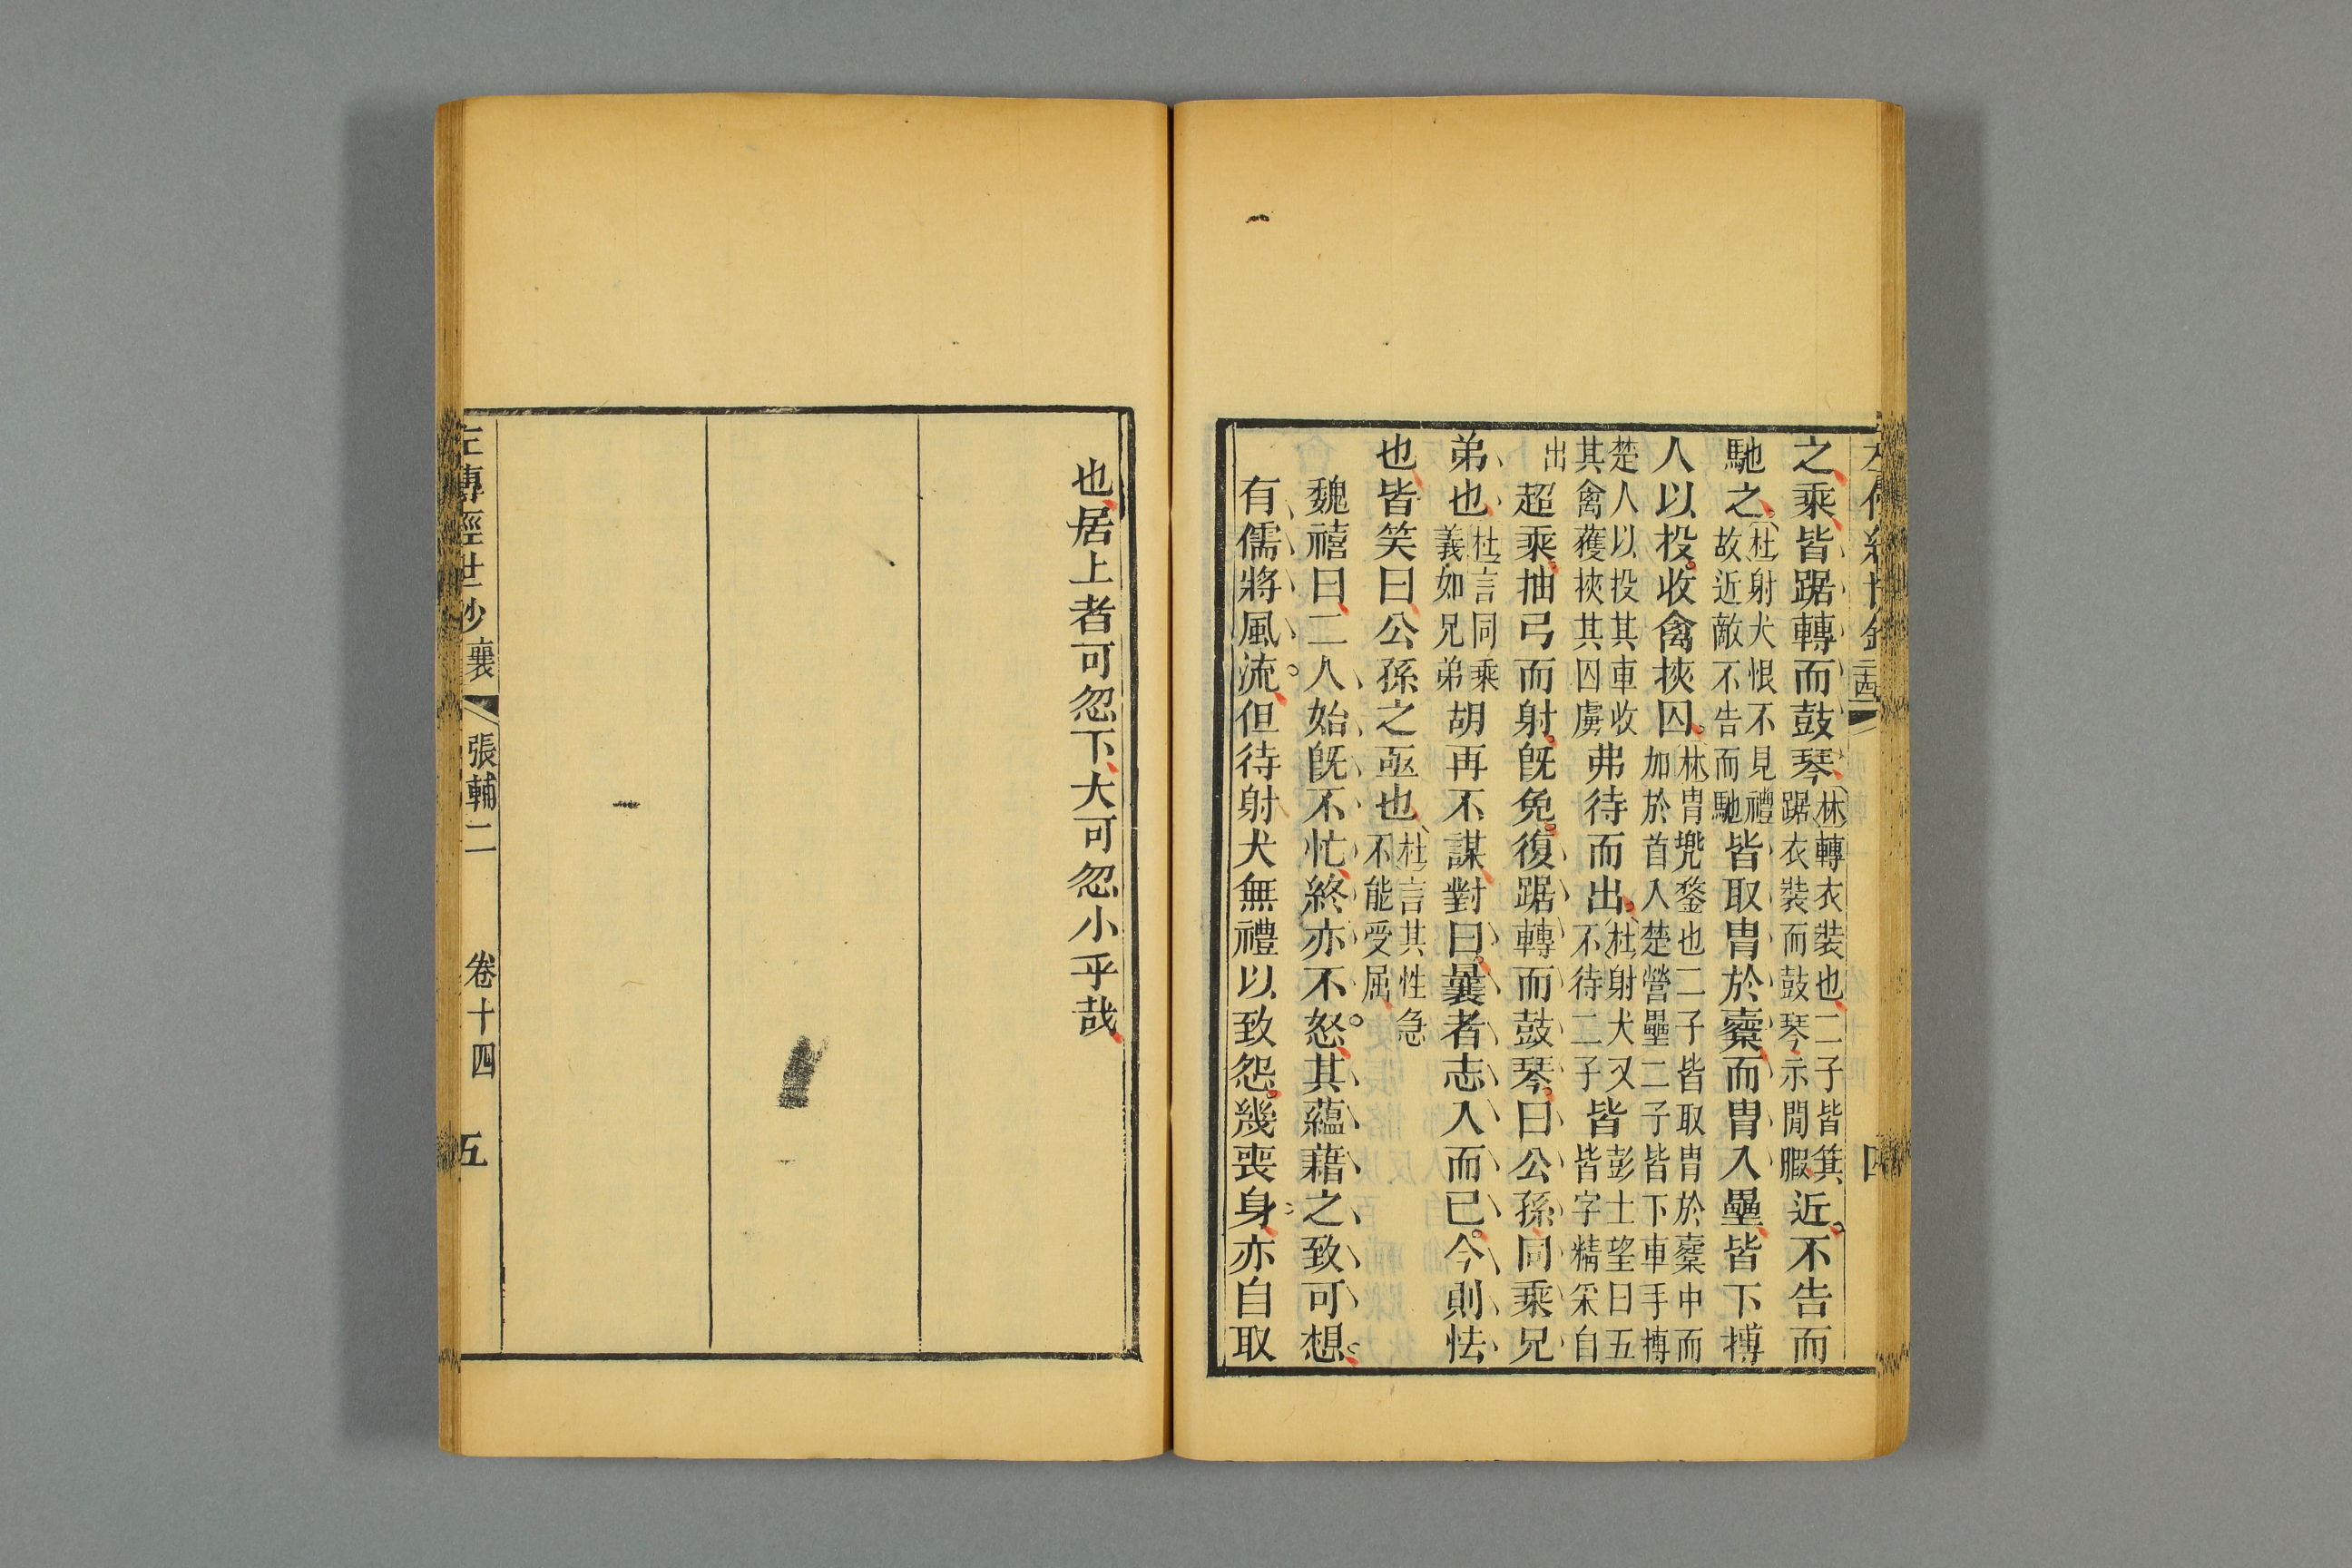 之乘皆踞轉而鼓琴林轉衣裝也二子皆箕踞衣裝而鼓琴示閒暇近不告而
馳之杜射犬恨不見禮故近敵不告而馳皆取胄於櫜而胄入壘皆下搏
人以投收禽挾囚林胄兜鍪也二子皆取胄於櫜中而加於首入楚營壘二子皆下車手搏
楚人以投其車收其禽獲挾其囚虜弗待而出杜射犬又不待二子皆彭士望曰五皆字精采自
出超乘抽弓而射旣免復踞轉而鼓琴曰公孫同乘兄
弟也杜言同乘義如兄弟胡再不謀對曰曩者志入而已今則怯
也皆笑曰公孫之亟也杜言其性急不能受屈
魏禧曰二人始旣不忙終亦不怒其蘊藉之致可想
有儒將風流但待射犬無禮以致怨幾喪身亦自取
也居上者可忽下大可忽小乎哉
左傳經世鈔 襄 張輔二 卷十四 五